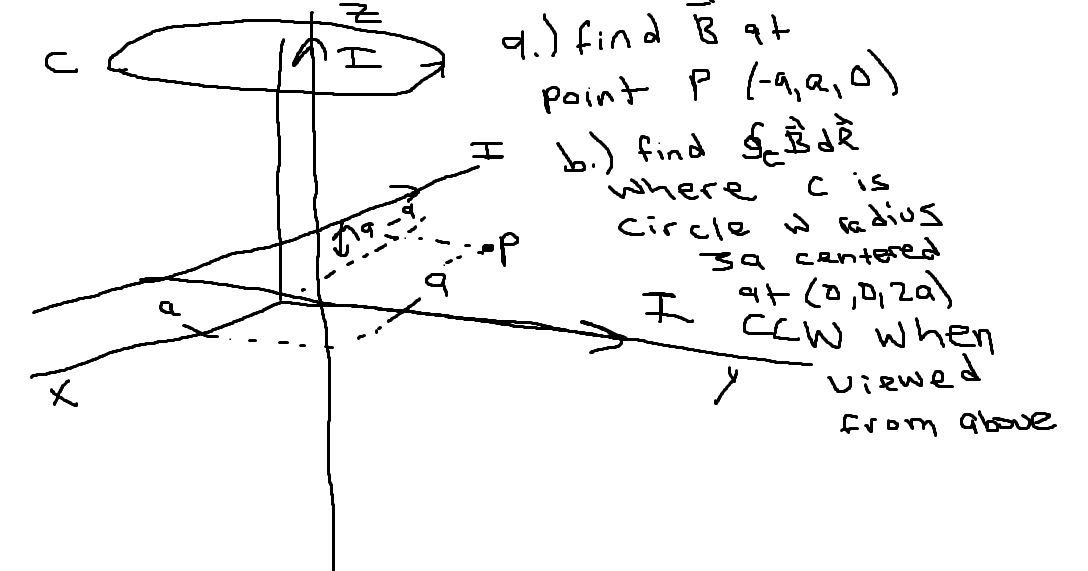 Z
C
I
a.) find B⃗ at
point P (-a, a, 0)
I
b.) find ∮c B⃗ dl⃗
where C is
circle w radius
3a centered
at (0,0,2a)
CCW when
viewed
from above
a
a
P
a
a
I
x
y